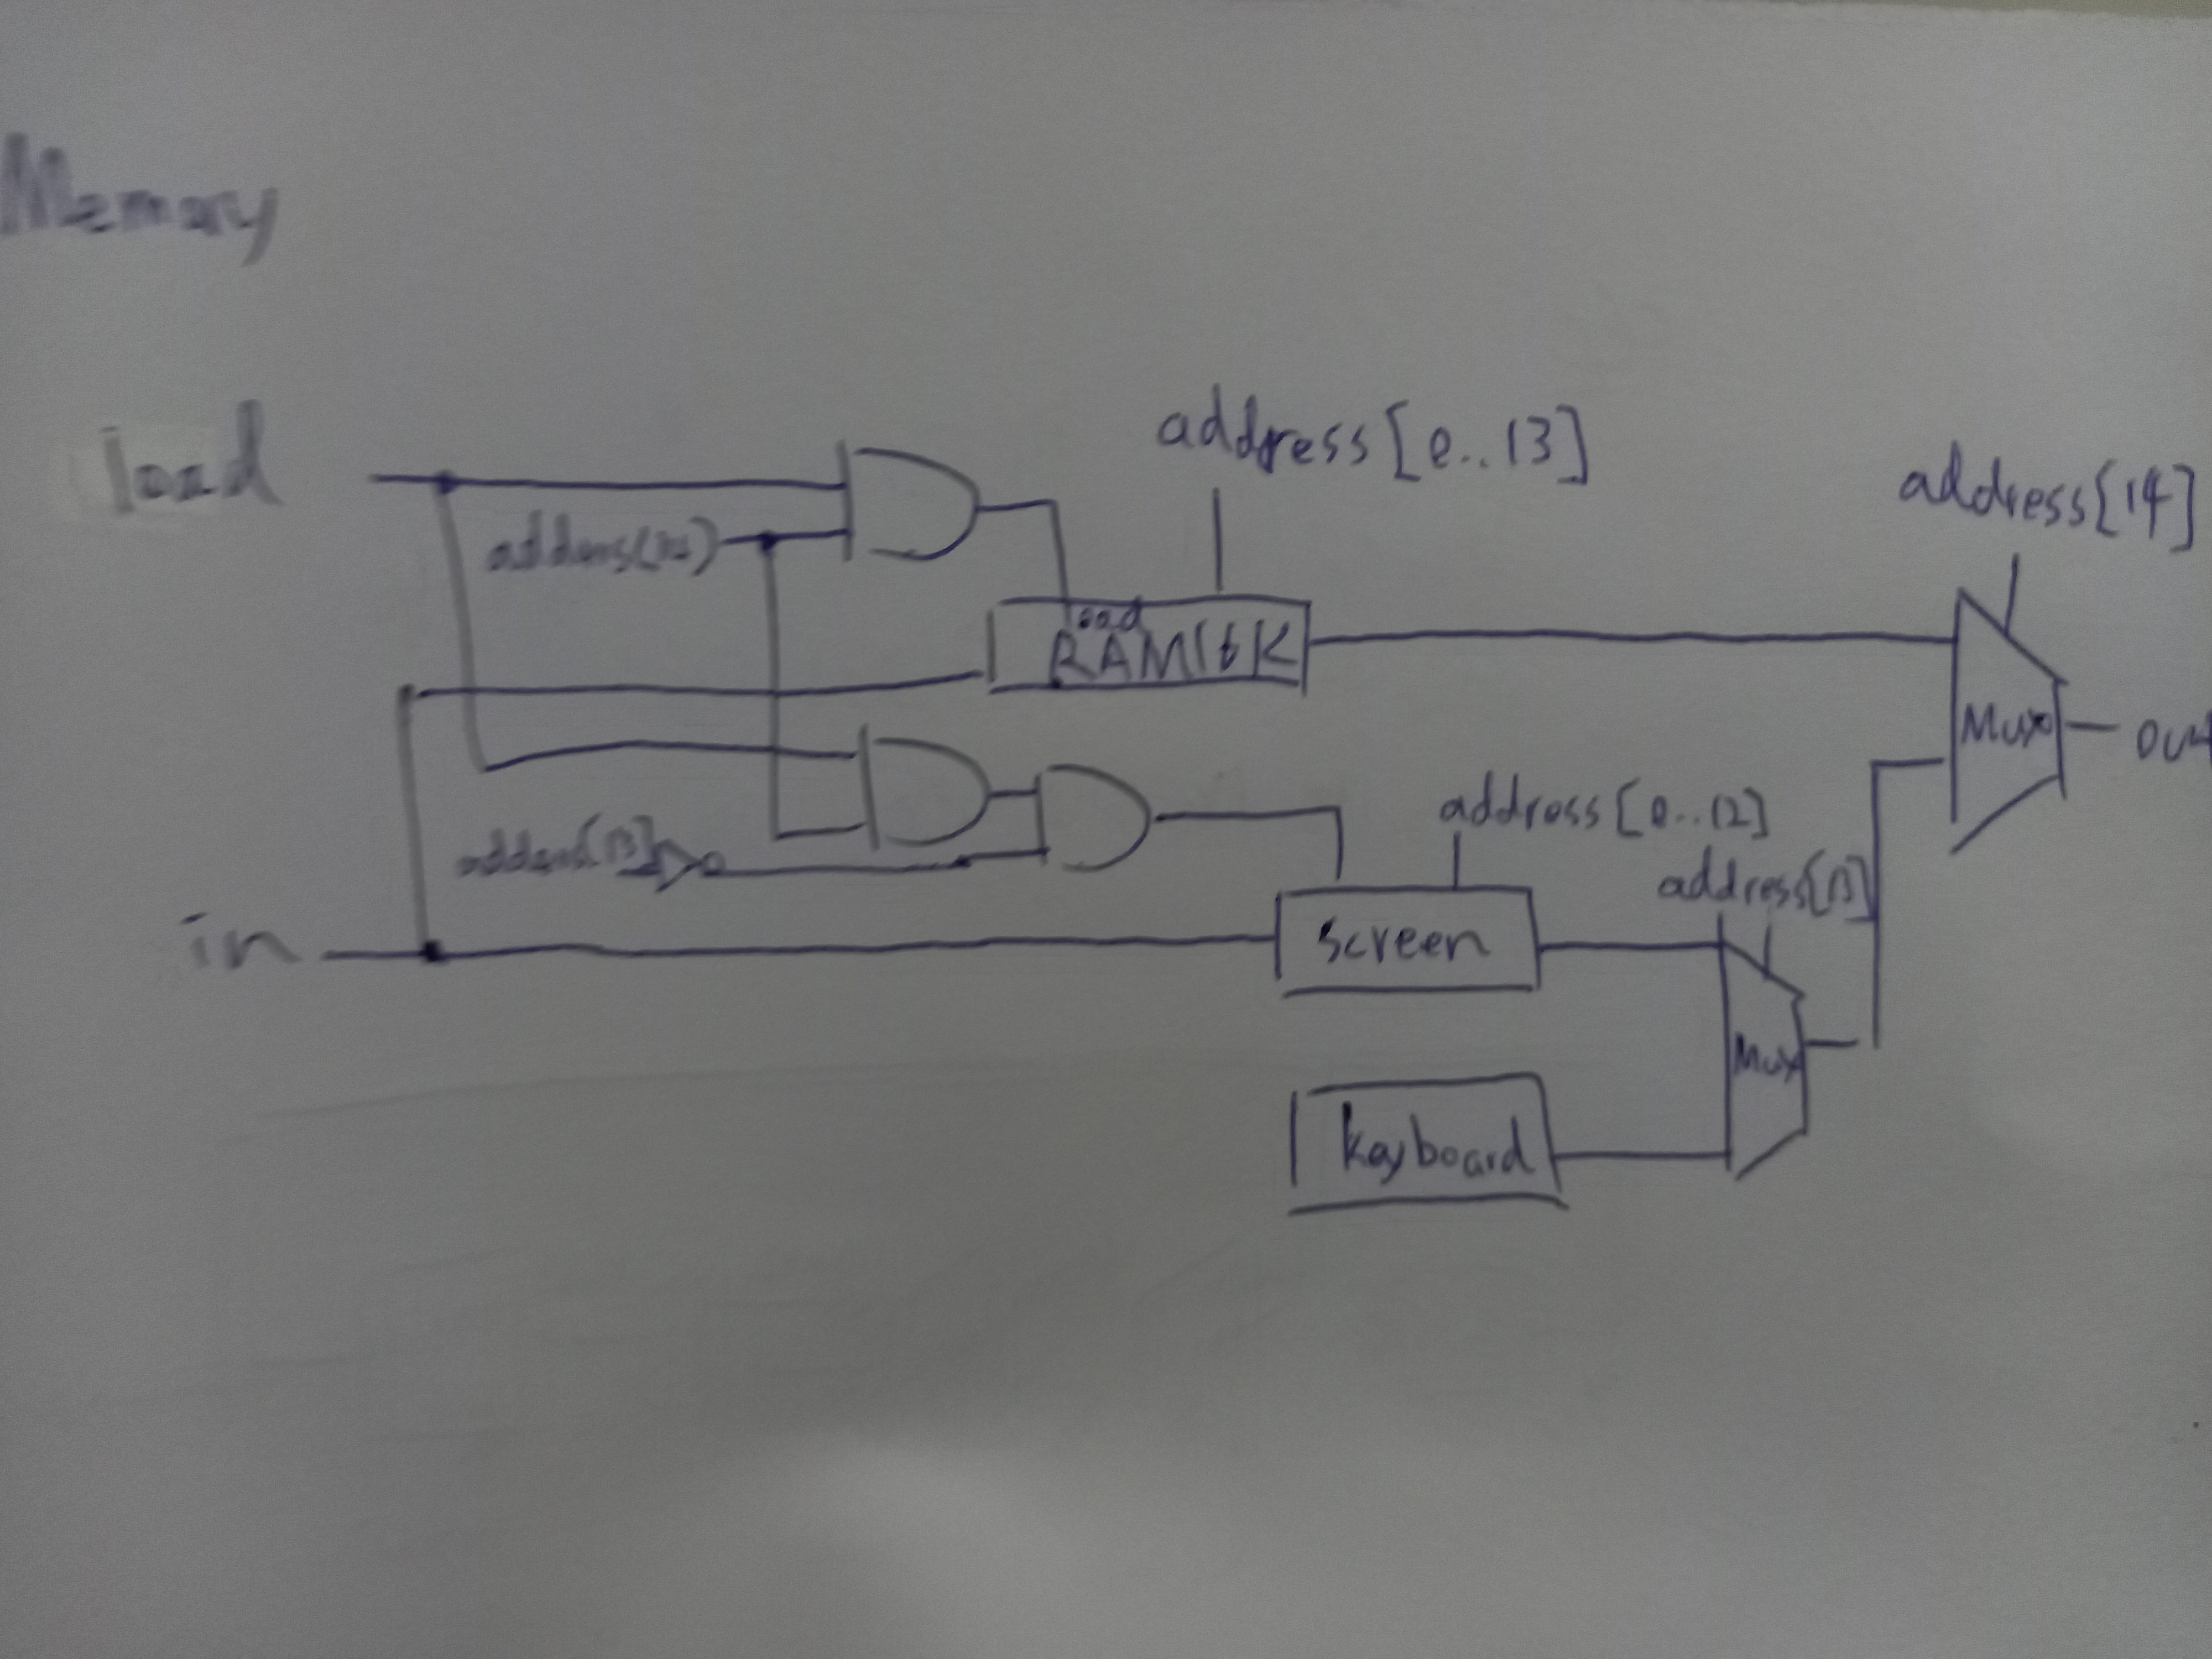 Memory
load
address[0..13]
address[14]
address[14]
load
RAM16K
Mux
out
address[13]
address[0..12]
address[13]
in
screen
Mux
keyboard